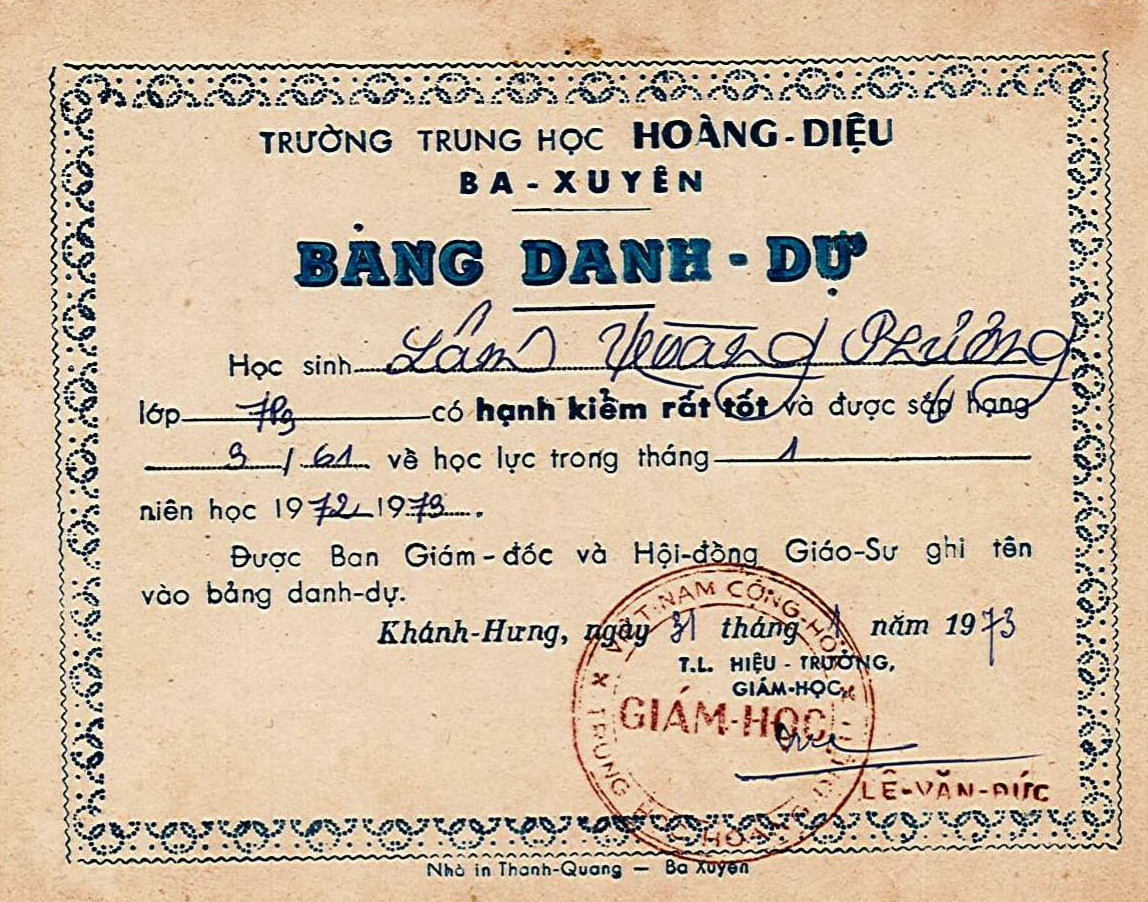 TRƯỜNG TRUNG HỌC HOÀNG-DIỆU
BA-XUYÊN
BẢNG DANH-DỰ
Học sinh Lâm Hoàng Phương
lớp 7B3 có hạnh kiểm rất tốt và được sắp hạng
3 / 61 về học lực trong tháng 1
niên học 1972 1973.
Được Ban Giám-đốc và Hội-đồng Giáo-Sư ghi tên
vào bảng danh-dự.
Khánh-Hưng, ngày 31 tháng 1 năm 1973
T.L. HIỆU-TRƯỞNG,
GIÁM-HỌC,
VIỆT-NAM CỘNG-HÒA
GIÁM-HỌC
TRUNG HỌC HOÀNG-DIỆU
LÊ-VĂN-ĐỨC
Nhà in Thanh-Quang — Ba Xuyên